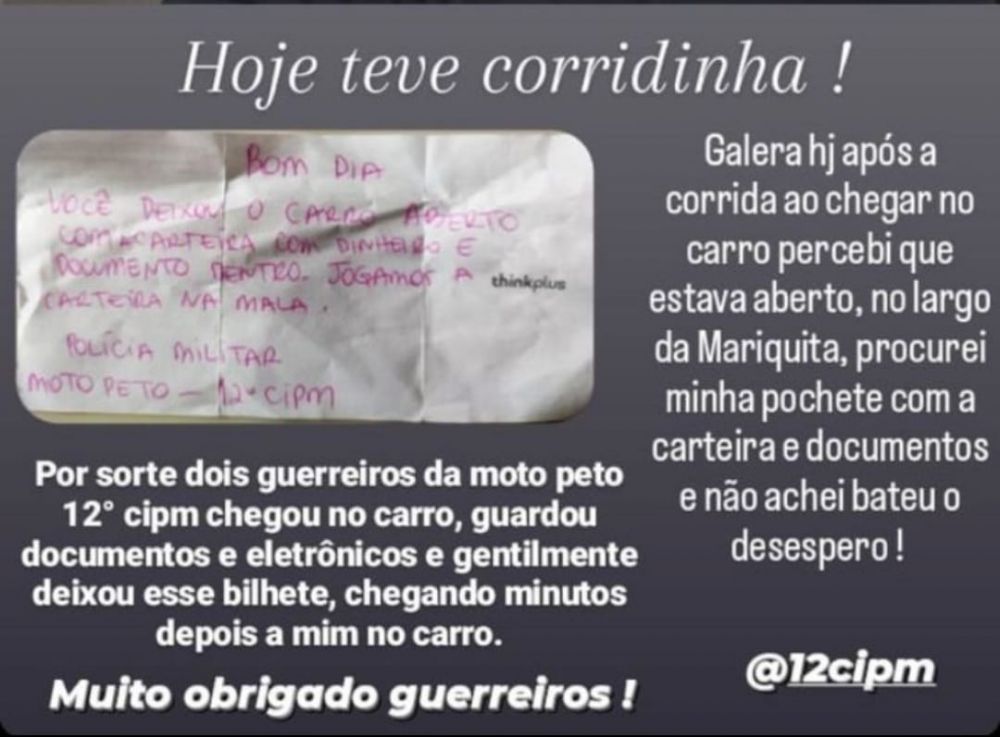 Hoje teve corridinha !
BOM DIA
VOCÊ DEIXOU O CARRO ABERTO
COM A CARTEIRA COM DINHEIRO E
DOCUMENTO DENTRO. JOGAMOS A
CARTEIRA NA MALA.
thinkplus
POLÍCIA MILITAR
MOTO PETO - 12ª CIPM
Por sorte dois guerreiros da moto peto
12° cipm chegou no carro, guardou
documentos e eletrônicos e gentilmente
deixou esse bilhete, chegando minutos
depois a mim no carro.
Muito obrigado guerreiros !
Galera hj após a
corrida ao chegar no
carro percebi que
estava aberto, no largo
da Mariquita, procurei
minha pochete com a
carteira e documentos
e não achei bateu o
desespero !
@12cipm